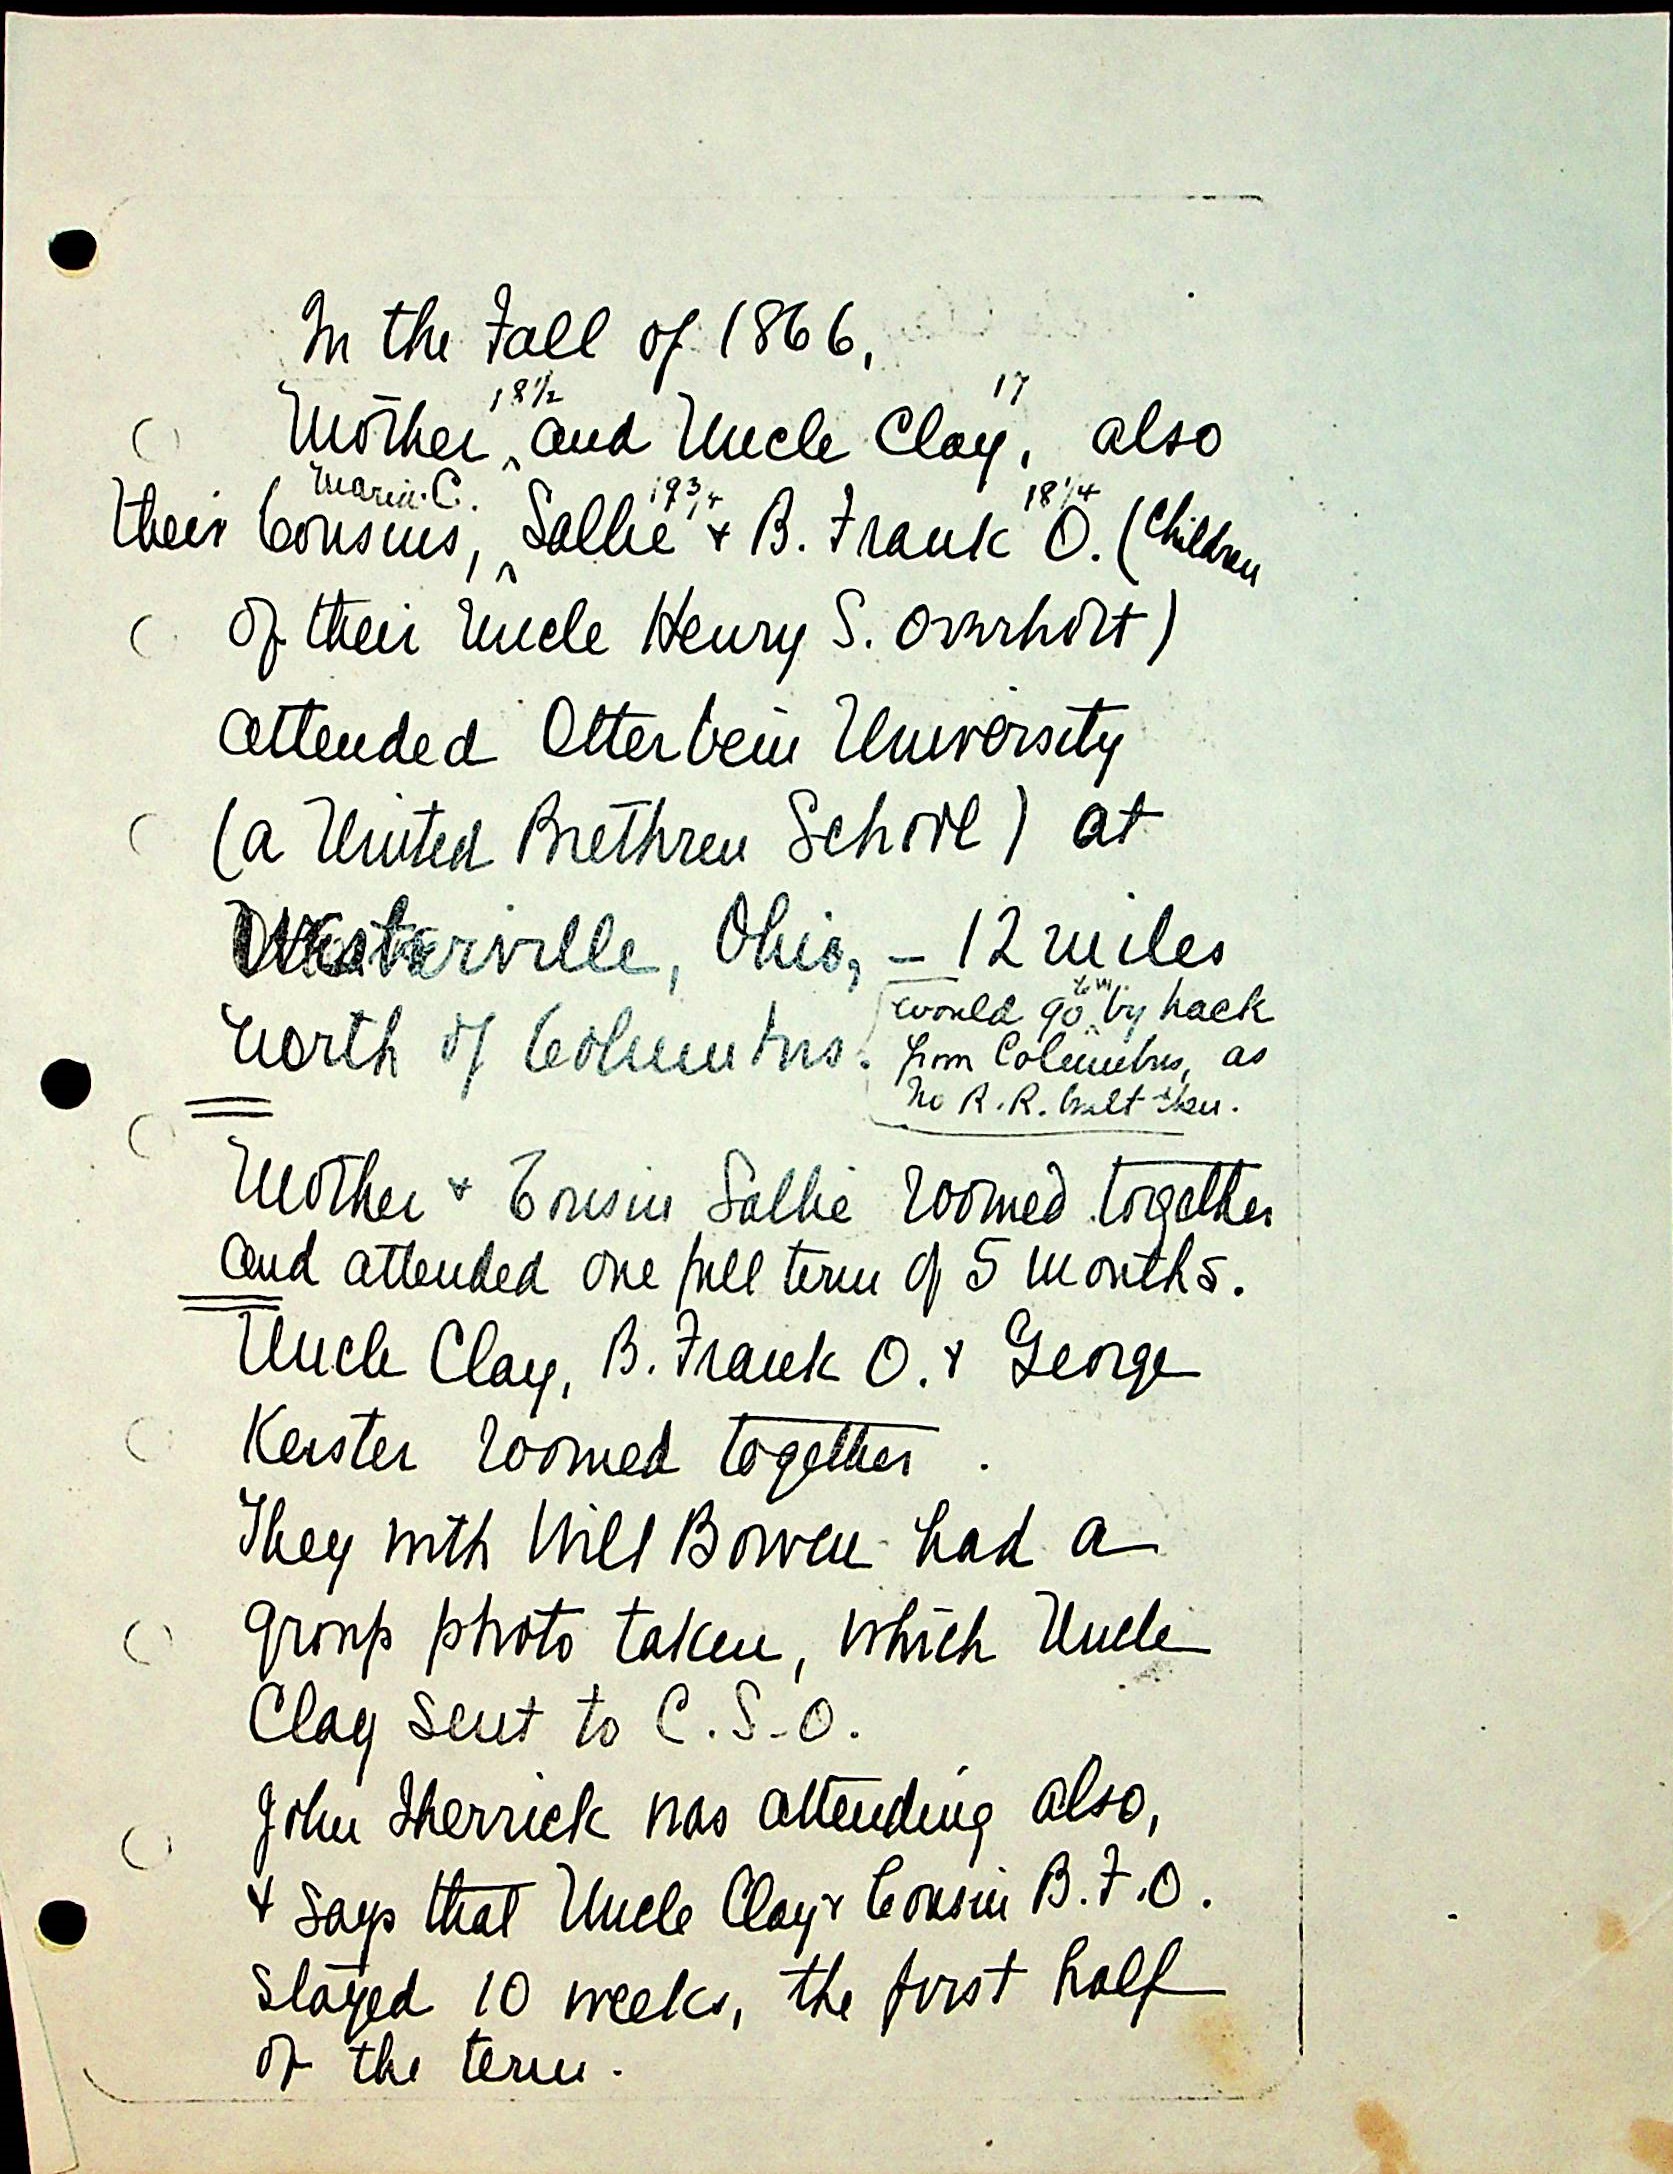 In the Fall of 1866,
18½ 17
Mother ^ and Uncle Clay, also
Maria C. 19¾ 18¼
their Cousins, ^ Sallie & B. Frank O. (Children
of their Uncle Henry S. Overholt)
attended Otterbein University
(a United Brethren School) at
Westerville, Ohio, – 12 miles
north of Columbus.
would go ^ by hack
from Columbus, as
no R.R. built then.
Mother & Cousin Sallie roomed together
and attended one full term of 5 months.
Uncle Clay, B. Frank O. & George
Keister roomed together.
They with Will Bowen had a
group photo taken, which Uncle
Clay sent to C.S.O.
John Sherrick was attending also,
& says that Uncle Clay & Cousin B.F.O.
stayed 10 weeks, the first half
of the term.